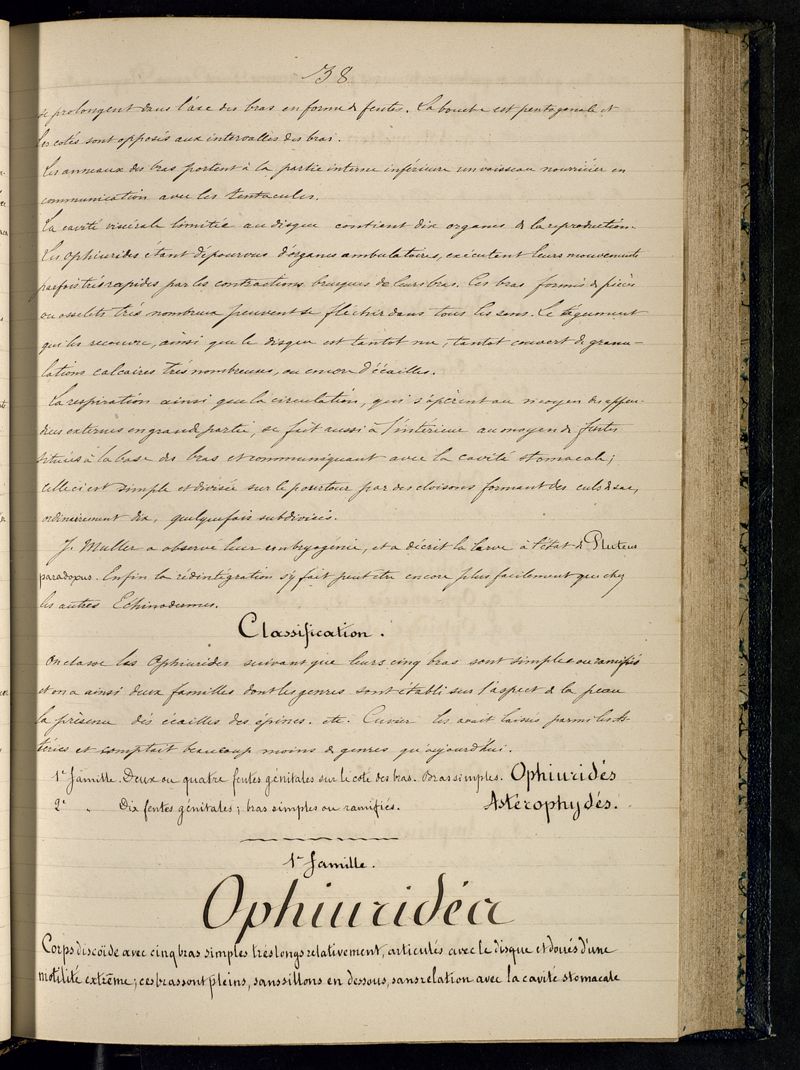 38
se prolongent dans l'axe des bras en forme de fentes. La bouche est pentagonale et
les cotés sont opposés aux intervalles des bras.
Les anneaux des bras portent à la partie interne inférieure un vaisseau nourricier en
communication avec les tentacules.
La cavité viscérale limitée au disque contient dix organes de la reproduction.
Les Ophiurides étant dépourvus d'organes ambulatoires, exécutent leurs mouvements
parfois très rapides par les contractions brusques de leurs bras. Ces bras formés de pièces
ou osselets très nombreux peuvent se fléchir dans tous les sens. Le tégument
qui les recouvre, ainsi que le disque est tantot nu, tantot couvert de granu-
lations calcaires très nombreuses, ou encore d'écailles.
La respiration ainsi que la circulation, qui s'opèrent au moyen des appen-
dices externes en grande partie, se fait aussi à l'intérieur au moyen de fentes
situées à la base des bras et communiquant avec la cavité stomacale;
celle ci est simple et divisée sur le pourtour par des cloisons formant des culs de sac,
ordinairement dix, quelquefois subdivisés.
J. Muller a observé leur embryogénie, et a décrit la larve à l'état de Pluteus
paradoxus. Enfin la rédintégration s'y fait peut être encore plus facilement que chez
les autres Echinodermes.
Classification.
On classe les Ophiurides suivant que leurs cinq bras sont simples ou ramifiés
et on a ainsi deux familles dont les genres sont établi sur l'aspect de la peau
la présence des écailles des épines. etc. Cuvier les avait laissés parmi les As-
téries et comptait beaucoup moins de genres qu'aujourd'hui.
1e famille. Deux ou quatre fentes génitales sur le coté des bras. Bras simples. Ophiuridés
2e " Dix fentes génitales; bras simples ou ramifiés. Astérophydés.
1e famille.
Ophiuridéa
Corps discoïde avec cinq bras simples très longs relativement, articulés avec le disque et doués d'une
motilité extrême; ces bras sont pleins, sans sillons en dessous, sans relation avec la cavité stomacale